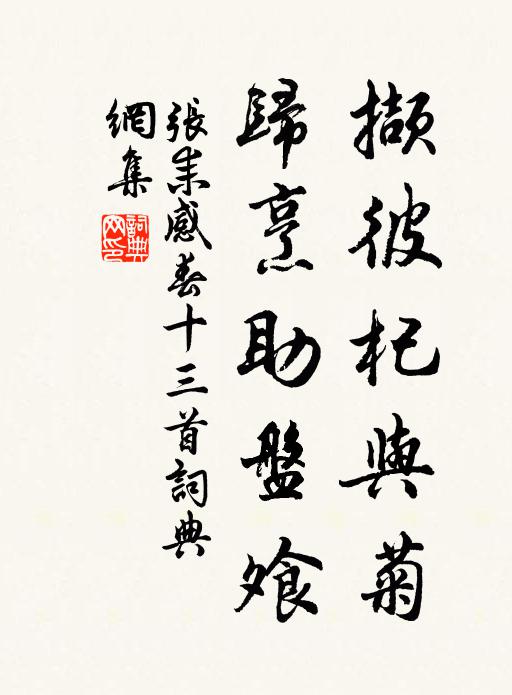 擷彼杞與菊
歸烹助盤飧
張耒感春十三首詞典
網集
詞典網印